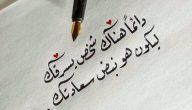 دائماً هناك شخص يسرقك
يكون هو نبض سعادتك